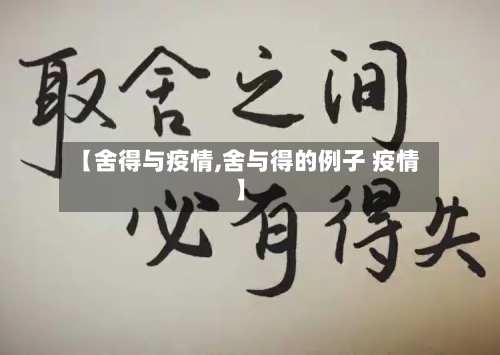 取舍之间
【舍得与疫情,舍与得的例子 疫情
】
必有得失